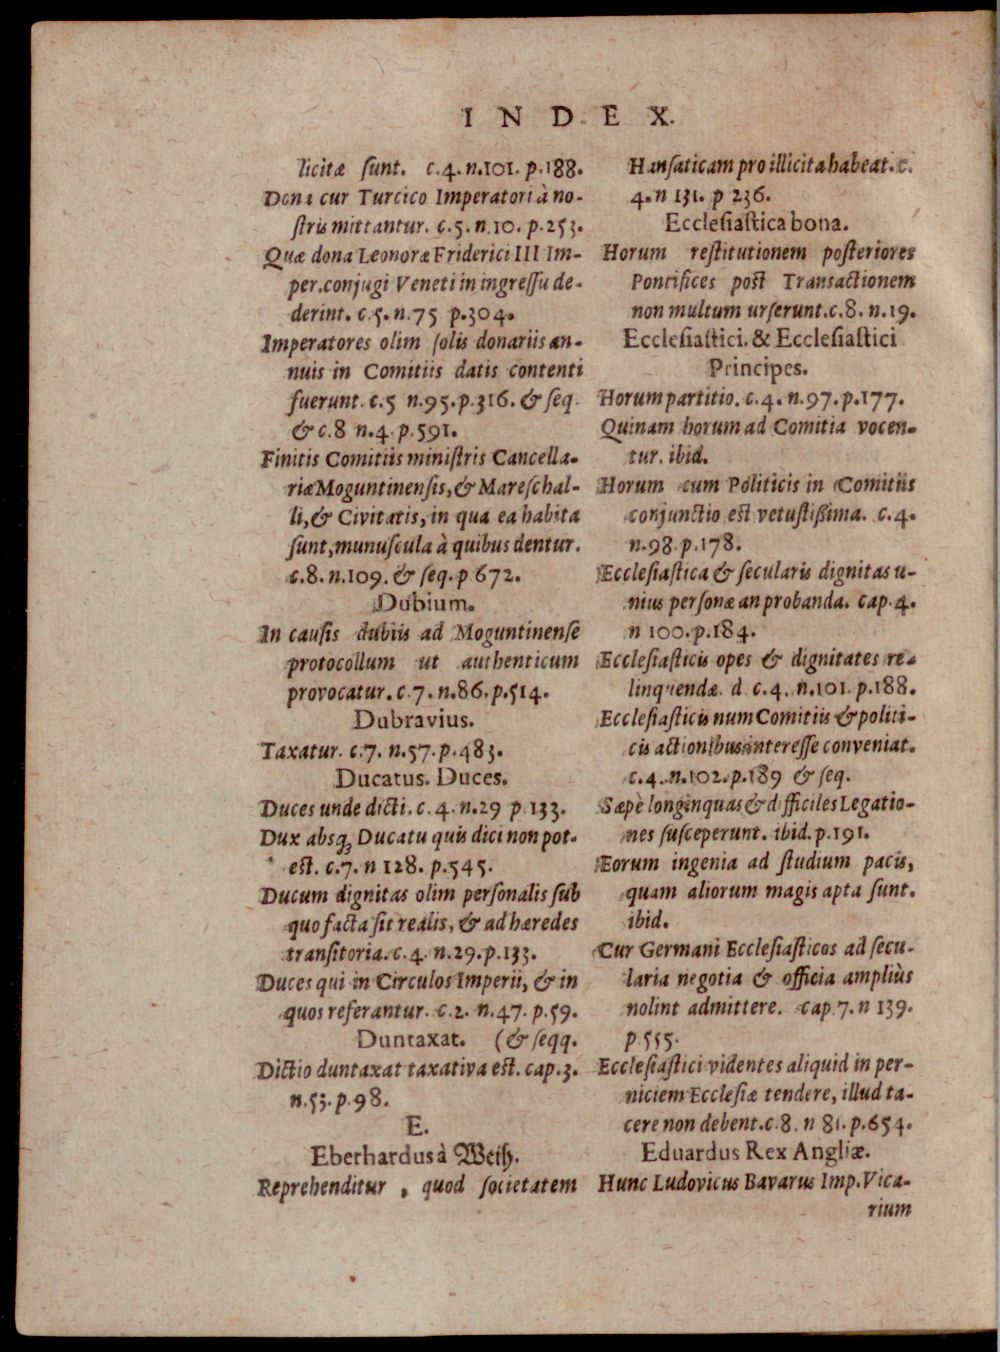 INDEX.
licitæ ſunt. c.4. n.101. p.188.
Dona cur Turcico Imperatori à no-
ſtris mittantur. c.5. n.10. p.253.
Quæ dona Leonoræ Friderici III Im-
per. conjugi Veneti in ingreſſu de-
derint. c.5. n.75 p.304.
Imperatores olim ſolis donariis an-
nuis in Comitiis datis contenti
fuerunt. c.5 n.95. p.316. & ſeq.
& c.8 n.4. p.591.
Finitis Comitiis miniſtris Cancella-
riæ Moguntinenſis, & Mareſchal-
li, & Civitatis, in qua ea habita
ſunt, munuſcula à quibus dentur.
c.8. n.109. & ſeq. p 672.
Dubium.
In cauſis dubiis ad Moguntinenſe
protocollum ut authenticum
provocatur. c.7. n.86. p.514.
Dubravius.
Taxatur. c.7. n.57. p.483.
Ducatus. Duces.
Duces unde dicti. c.4. n.29 p.133.
Dux absq; Ducatu quis dici non pot-
eſt. c.7. n 128. p.545.
Ducum dignitas olim perſonalis ſub
quo facta ſit realis, & ad hæredes
tranſitoria. c.4. n.29. p.133.
Duces qui in Circulos Imperii, & in
quos referantur. c.2. n.47. p.59.
Duntaxat. (& ſeqq.
Dictio duntaxat taxativa eſt. cap.3.
n.53. p.98.
E.
Eberhardus à Weiſz.
Reprehenditur, quod ſocietatem
Hanſaticam pro illicita habeat. c.
4. n 131. p 236.
Eccleſiaſtica bona.
Horum reſtitutionem poſteriores
Pontifices poſt Transactionem
non multum urſerunt. c.8. n.19.
Eccleſiaſtici. & Eccleſiaſtici
Principes.
Horum partitio. c.4. n.97. p.177.
Quinam horum ad Comitia vocen-
tur. ibid.
Horum cum Politicis in Comitiis
conjunctio eſt vetuſtißima. c.4.
n.98. p.178.
Eccleſiaſtica & ſecularis dignitas u-
nius perſonæ an probanda. cap.4.
n 100. p.184.
Eccleſiaſticis opes & dignitates re-
linquendæ. d. c.4. n.101. p.188.
Eccleſiaſticis num Comitiis & politi-
cis actionibus intereſſe conveniat.
c.4. n.102. p.189 & ſeq.
Sæpè longinquas & difficiles Legatio-
nes ſuſceperunt. ibid. p.191.
Eorum ingenia ad ſtudium pacis,
quam aliorum magis apta ſunt.
ibid.
Cur Germani Eccleſiaſticos ad ſecu-
laria negotia & officia ampliùs
nolint admittere. cap.7. n 139.
p.555.
Eccleſiaſtici videntes aliquid in per-
niciem Eccleſiæ tendere, illud ta-
cere non debent. c.8. n 81. p.654.
Eduardus Rex Angliæ.
Hunc Ludovicus Bavarus Imp. Vica-
rium